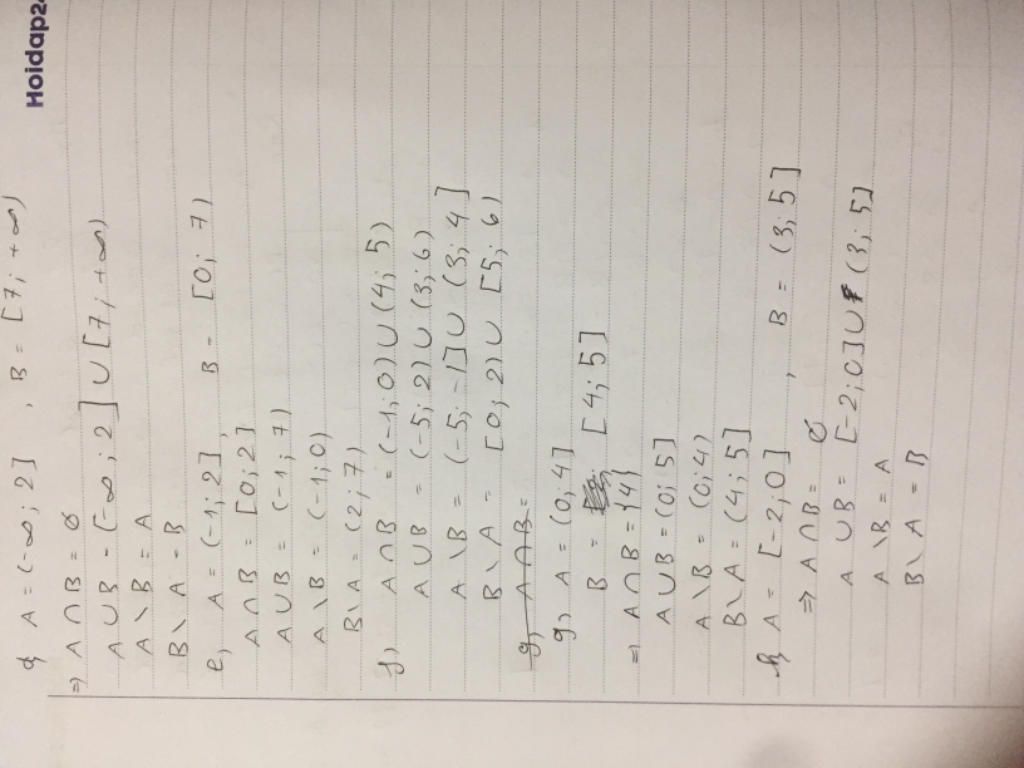 Hoidap24
d, A = (-∞; 2] , B = [7; +∞)
=> A ∩ B = ∅
A ∪ B = (-∞; 2] ∪ [7; +∞)
A \ B = A
B \ A = B
e, A = (-1; 2], B = [0; 7)
A ∩ B = [0; 2]
A ∪ B = (-1; 7)
A \ B = (-1; 0)
B \ A = (2; 7)
f, A ∩ B = (-1; 0) ∪ (4; 5)
A ∪ B = (-5; 2) ∪ (3; 6)
A \ B = (-5; -1] ∪ (3; 4]
B \ A = [0; 2) ∪ [5; 6)
g, A ∩ B =
g, A = (0; 4]
B = [4; 5]
=> A ∩ B = {4}
A ∪ B = (0; 5]
A \ B = (0; 4)
B \ A = (4; 5]
h, A = [-2; 0] , B = (3; 5]
=> A ∩ B = ∅
A ∪ B = [-2; 0] ∪ (3; 5]
A \ B = A
B \ A = B